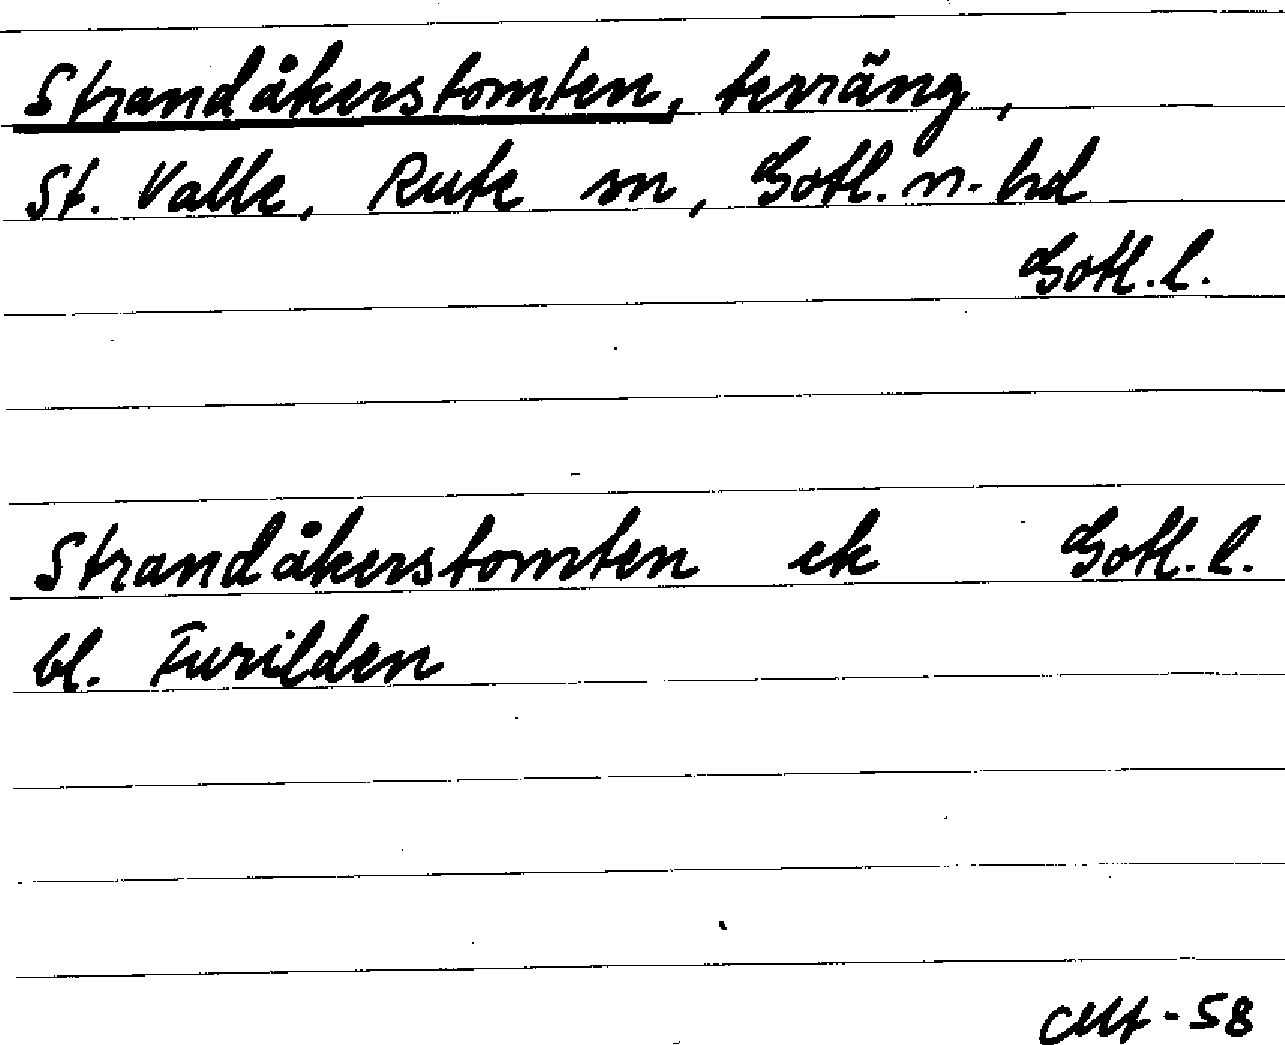 Strandåkerstomten, terräng,
St. Valle, Rute sn, Gotl. n. hd
Gotl. l.
Strandåkerstomten ek Gotl. l.
bl. Furilden